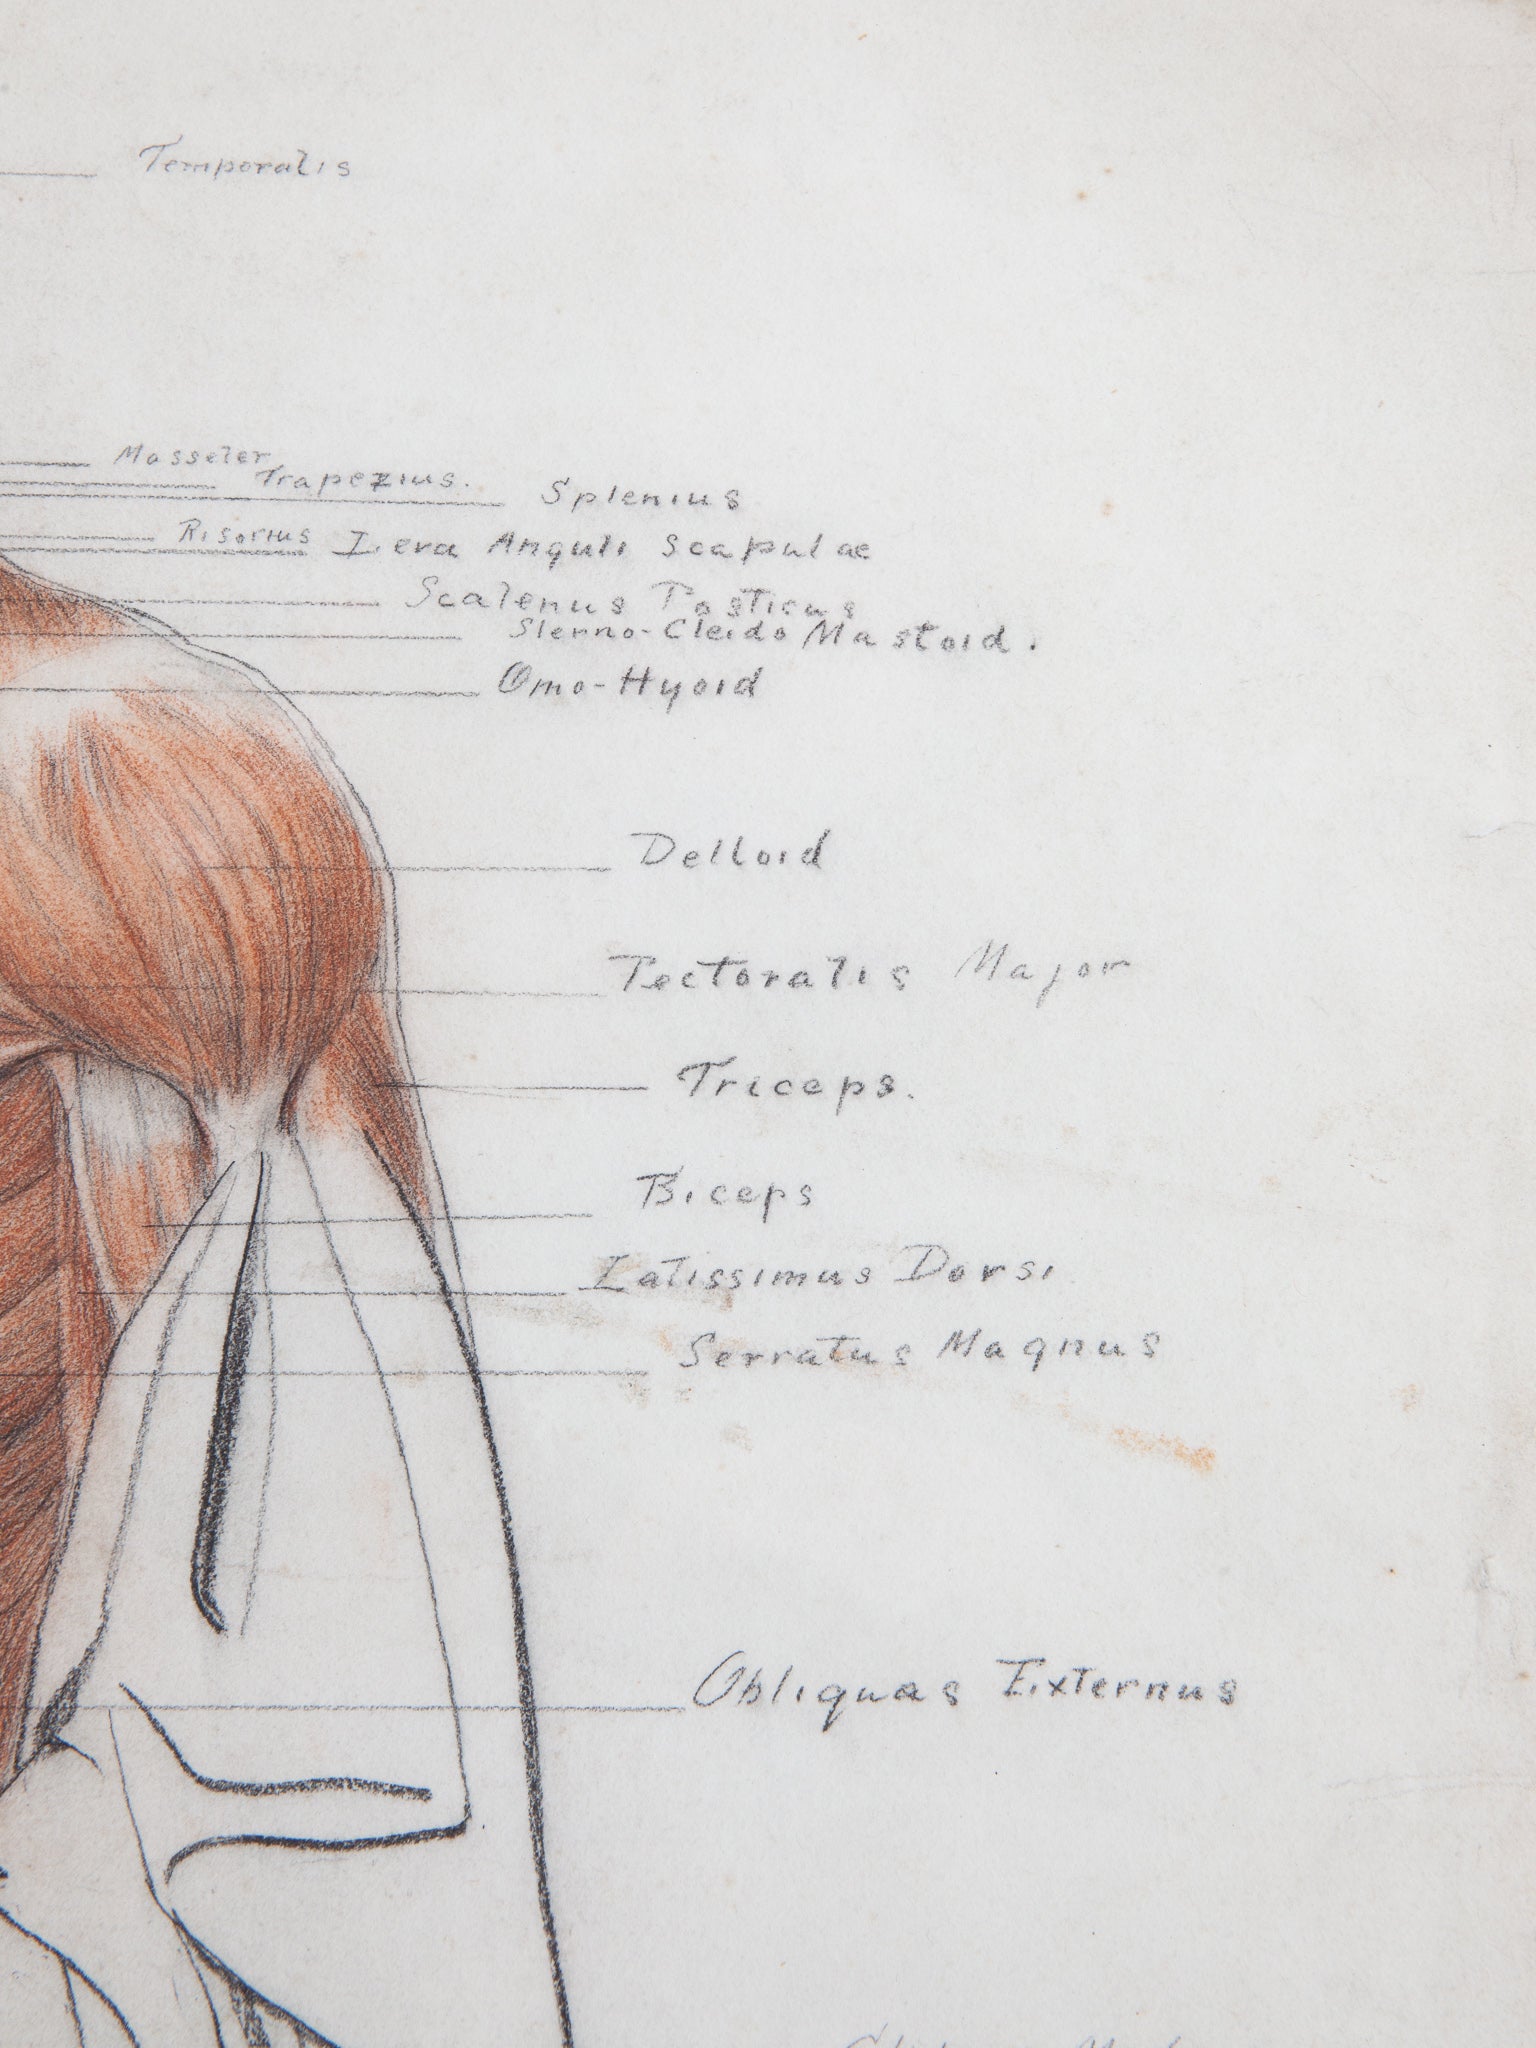 Temporalis
Masseter
Trapezius.
Splenius
Risorius
Leva Anguli Scapulae
Scalenus Posticus
Sterno-Cleido Mastoid.
Omo-Hyoid
Deltoid
Pectoralis Major
Triceps.
Biceps
Latissimus Dorsi
Serratus Magnus
Obliquas Externus